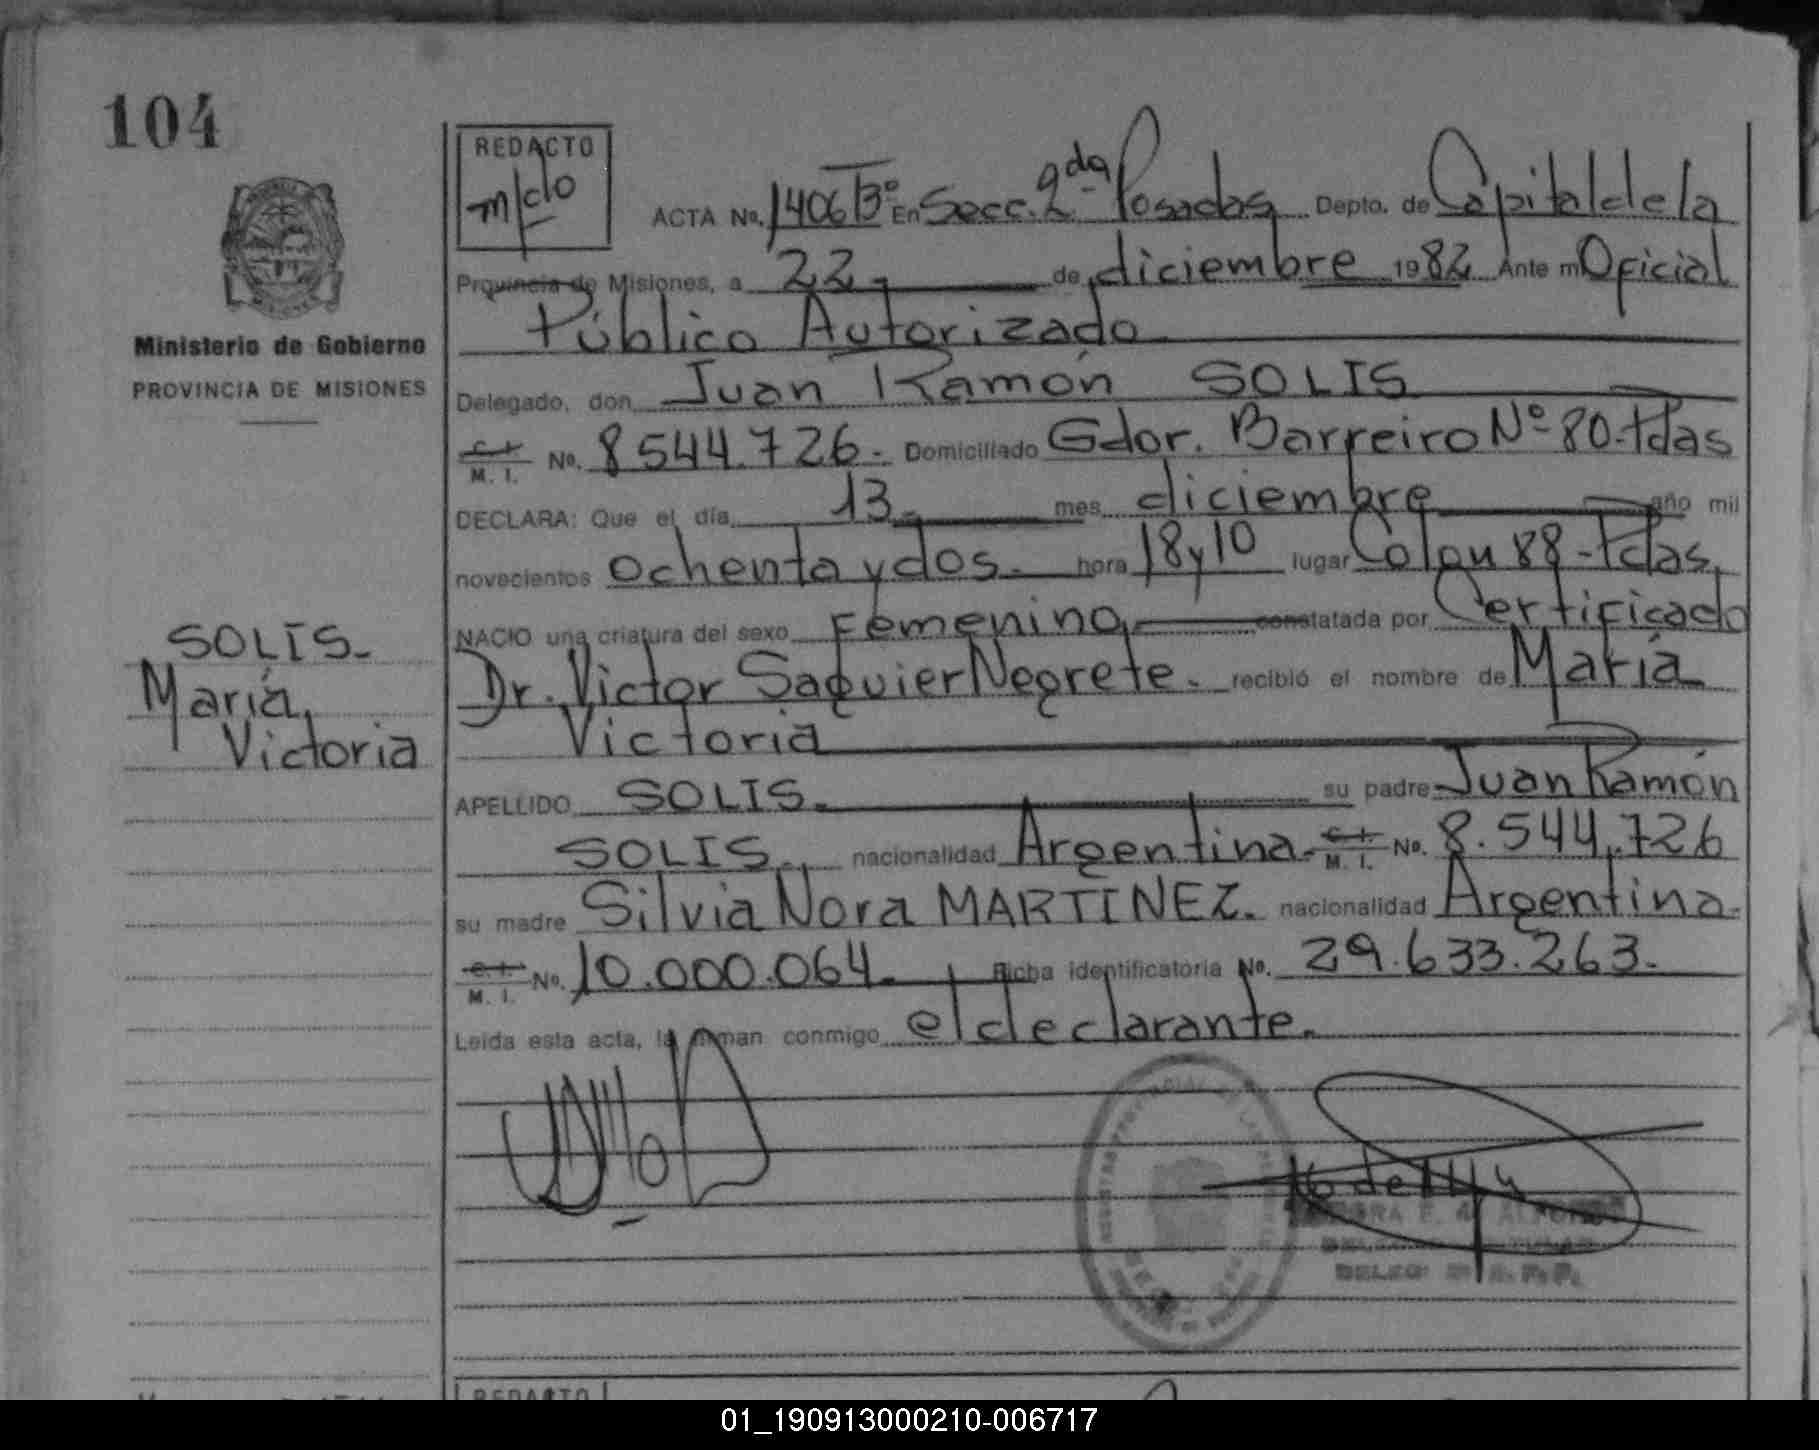 104
REDACTO
m/cdo
ACTA No. 1406 Tº 3º En Secc. 2da Posadas Depto. de Capital de la
Provincia de Misiones, a 22 de diciembre 1982 Ante mí Oficial
Público Autorizado
Delegado, don Juan Ramón SOLIS
C. I. M. I. No. 8544.726. Domiciliado Gdor. Barreiro Nº 80-Pdas
DECLARA: Que el día 13 mes diciembre año mil
novecientos ochenta y dos. hora 18 y 10 lugar Colón 88-Pdas,
NACIO una criatura del sexo Femenino, constatada por Certificado
Dr. Victor Saguier Negrete. recibió el nombre de María
Victoria
APELLIDO SOLIS. su padre Juan Ramón
SOLIS. nacionalidad Argentina. C. I. M. I. No. 8.544.726
su madre Silvia Nora MARTINEZ. nacionalidad Argentina.
C. I. M. I. No. 10.000.064. Ficha identificatoria No. 29.633.263.
Leida esta acta, la firman conmigo el declarante.
Ministerio de Gobierno
PROVINCIA DE MISIONES
SOLIS.
María
Victoria
REDACTO
01_190913000210-006717